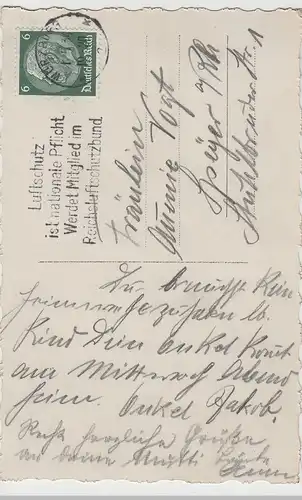 6 6
Deutsches Reich
Luftschutz
ist nationale Pflicht
Werdet Mitglied im
Reichsluftschutzbund
Fräulein
Annie Vogt
Speyer a/Rh
Du brauchst kein
heimweh zu haben lb.
Kind Dein Onkel komt
am Mittwoch Abend
heim. Onkel Jakob.
Recht herzliche Grüße
an deine Mutti Tante